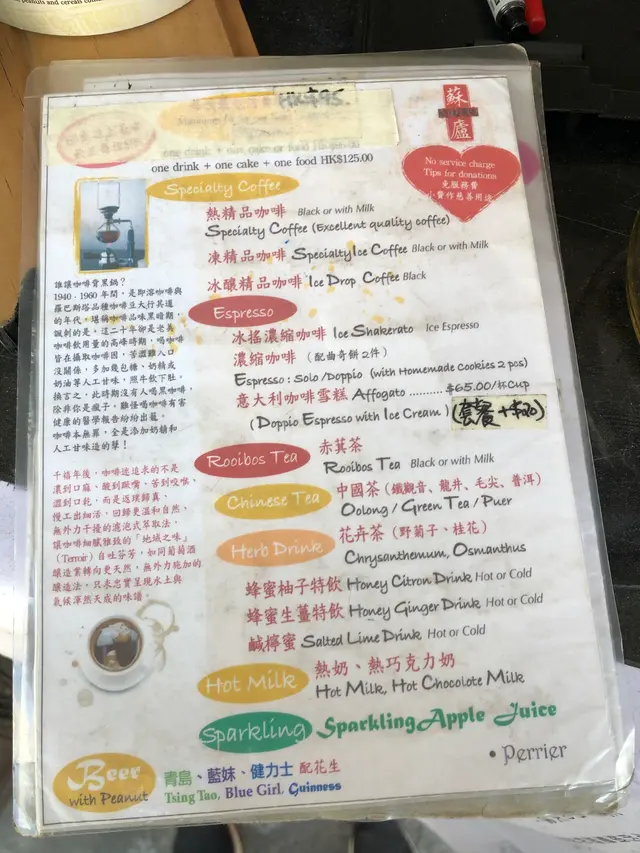 peanuts and cereals
HK$95.
one drink + one cake + one food HK$125.00
蘇
廬
No service charge
Tips for donations
免服務費
小費作慈善用途
Specialty Coffee
熱精品咖啡 Black or with Milk
Specialty Coffee (Excellent quality coffee)
凍精品咖啡 Specialty Ice Coffee Black or with Milk
冰釀精品咖啡 Ice Drop Coffee Black
Espresso
冰搖濃縮咖啡 Ice Shakerato Ice Espresso
濃縮咖啡 (配曲奇餅2件)
Espresso : Solo /Doppio (with Homemade Cookies 2 pcs)
意大利咖啡雪糕 Affogato .......... $65.00/杯Cup
(Doppio Espresso with Ice Cream)
(套餐 +$20)
Rooibos Tea
赤萁茶
Rooibos Tea Black or with Milk
Chinese Tea
中國茶 (鐵觀音、龍井、毛尖、普洱)
Oolong / Green Tea / Puer
Herb Drink
花卉茶 (野菊子、桂花)
Chrysanthemum, Osmanthus
蜂蜜柚子特飲 Honey Citron Drink Hot or Cold
蜂蜜生薑特飲 Honey Ginger Drink Hot or Cold
鹹檸蜜 Salted Lime Drink Hot or Cold
Hot Milk
熱奶、熱巧克力奶
Hot Milk, Hot Chocolate Milk
Sparkling
Sparkling Apple Juice
• Perrier
Beer
with Peanut
青島、藍妹、健力士 配花生
Tsing Tao, Blue Girl, Guinness
誰讓咖啡背黑鍋?
1940 - 1960 年間,是即溶咖啡與
羅巴斯塔品種咖啡豆大行其道
的年代,堪稱咖啡品味黑暗期,
諷刺的是,這二十年卻是老美
咖啡飲用量的高峰時期,喝咖啡
皆在攝取咖啡因,苦澀難入口
沒關係,多加幾包糖,奶精或
奶油等人工甘味,照牛飲下肚。
換言之,此時期沒有人喝黑咖啡,
除非你是瘋子。難怪喝咖啡有害
健康的醫學報告紛紛出籠。
咖啡本無罪,全是添加奶精和
人工甘味造的孽!
千禧年後,咖啡迷追求的不是
濃到口麻、酸到噘嘴、苦到咬喉、
澀到口乾,而是返璞歸真,
慢工出細活,回歸更溫和自然,
無外力干擾的濾泡式萃取法,
讓咖啡細膩雅致的「地域之味」
(Terroir) 自吐芬芳,如同葡萄酒
釀造業轉向更天然,無外力施加的
釀造法,只求忠實呈現水土與
氣候渾然天成的味譜。